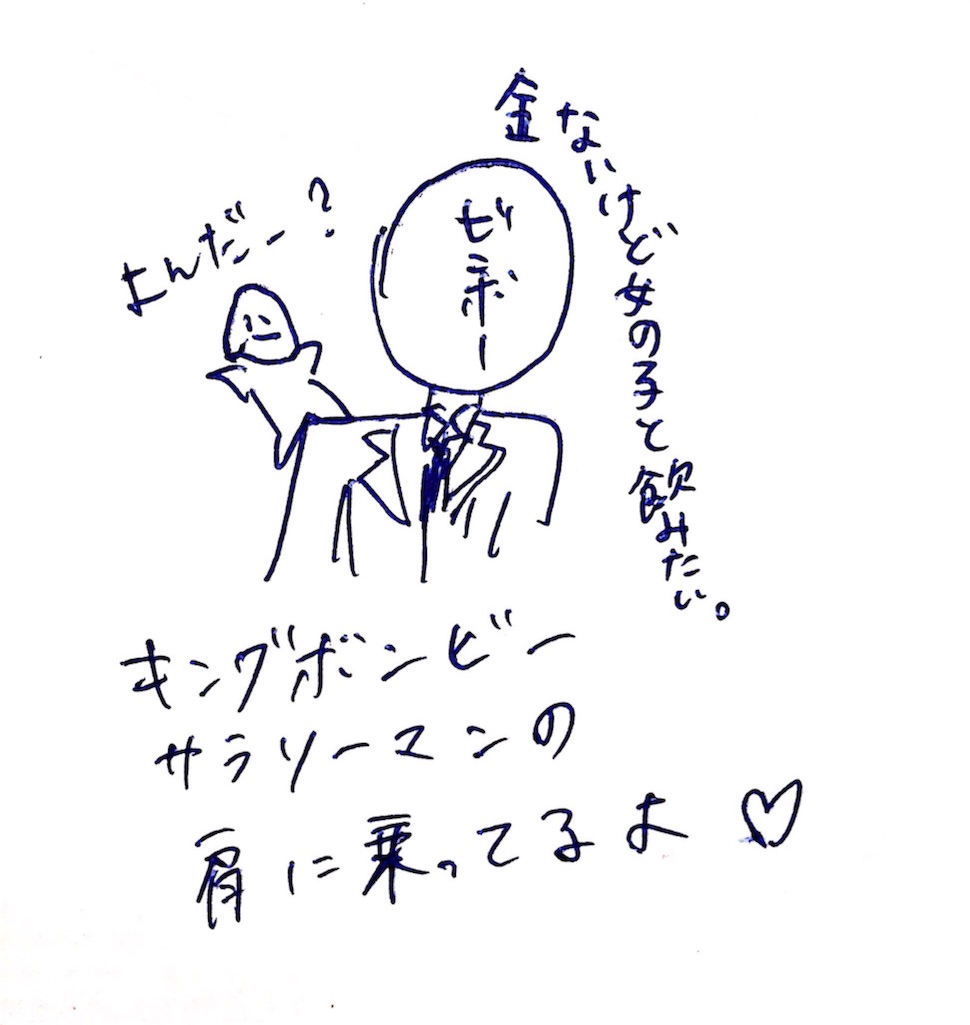 金ないけど女の子と飲みたい。
よんだー？
ビンボー
キングボンビー
サラリーマンの
肩に乗ってるよ♡